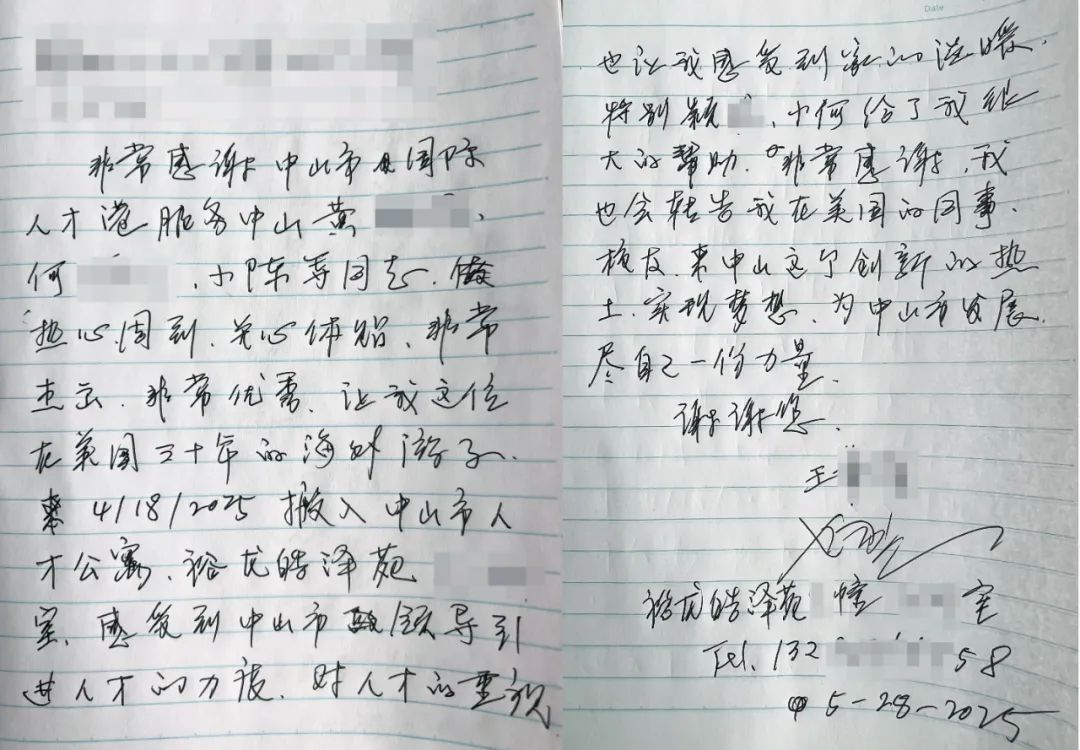 非常感谢中山市国际
人才港服务中山黄
何 、小陈等同志、做
热心周到、关心体贴、非常
杰出、非常优秀、让我这位
在美国三十年的海外游子、
4/18/2025 搬入中山市人
才公寓、裕龙皓泽苑
室、感受到中山市领导引
进人才的力度、对人才的重视
Date
也让我感受到家的温暖、
特别颖 、小何给了我很
大的帮助、非常感谢、我
也会转告我在美国的同事、
校友、来中山这个创新的热
土、实现梦想、为中山市发展、
尽自己一份力量、
谢谢您、
王
裕龙皓泽苑 幢 室
Tel、132 58
5-28-2025